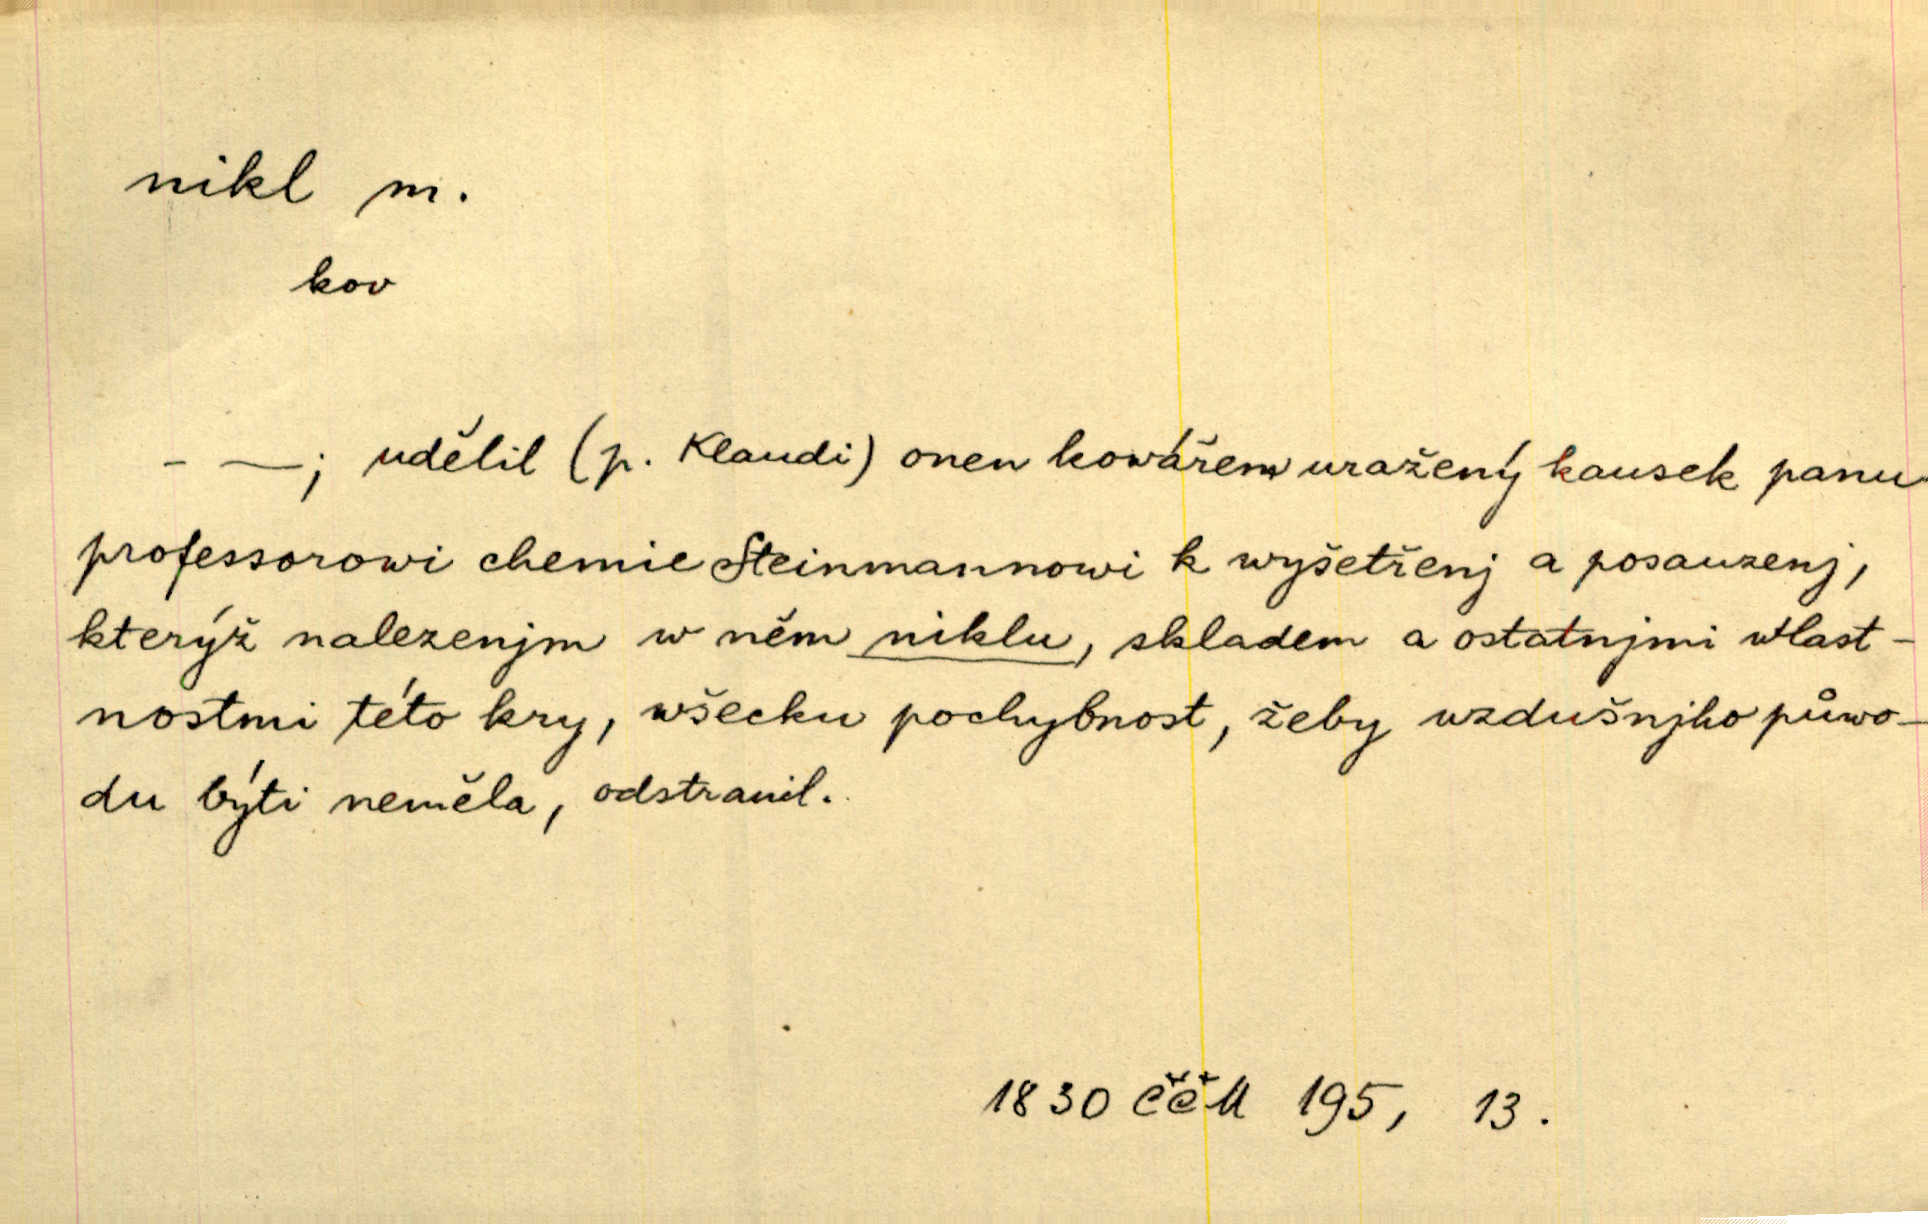 nikl m.
kov
- —; udělil (p. Klaudi) onen kowářem uražený kausek panu
professorowi chemie Steinmannowi k wyšetřenj a posauzenj,
kterýž nalezenjm w něm niklu, skladem a ostatnjmi wlast-
nostmi této kry, wšecku pochybnost, žeby wzdušnjho půwo-
du býti neměla, odstranil.
1830 ČČM 195, 13.